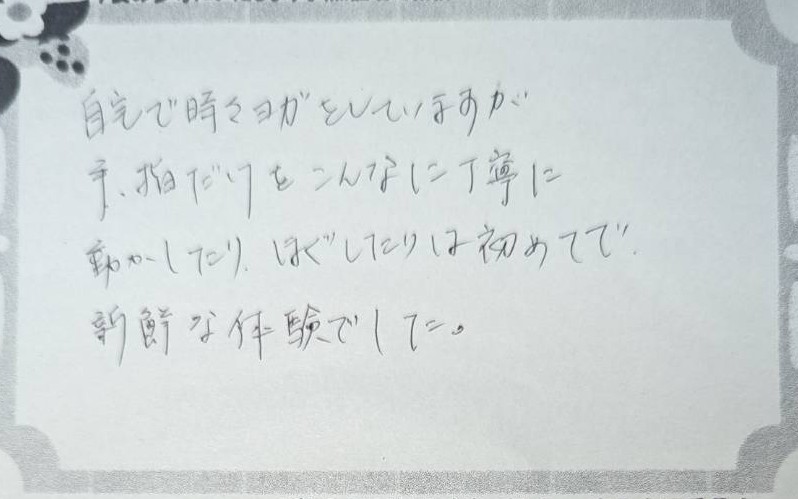 自宅で時々ヨガをしていますが
手、指だけをこんなに丁寧に
動かしたり、ほぐしたりは初めてで、
新鮮な体験でした。